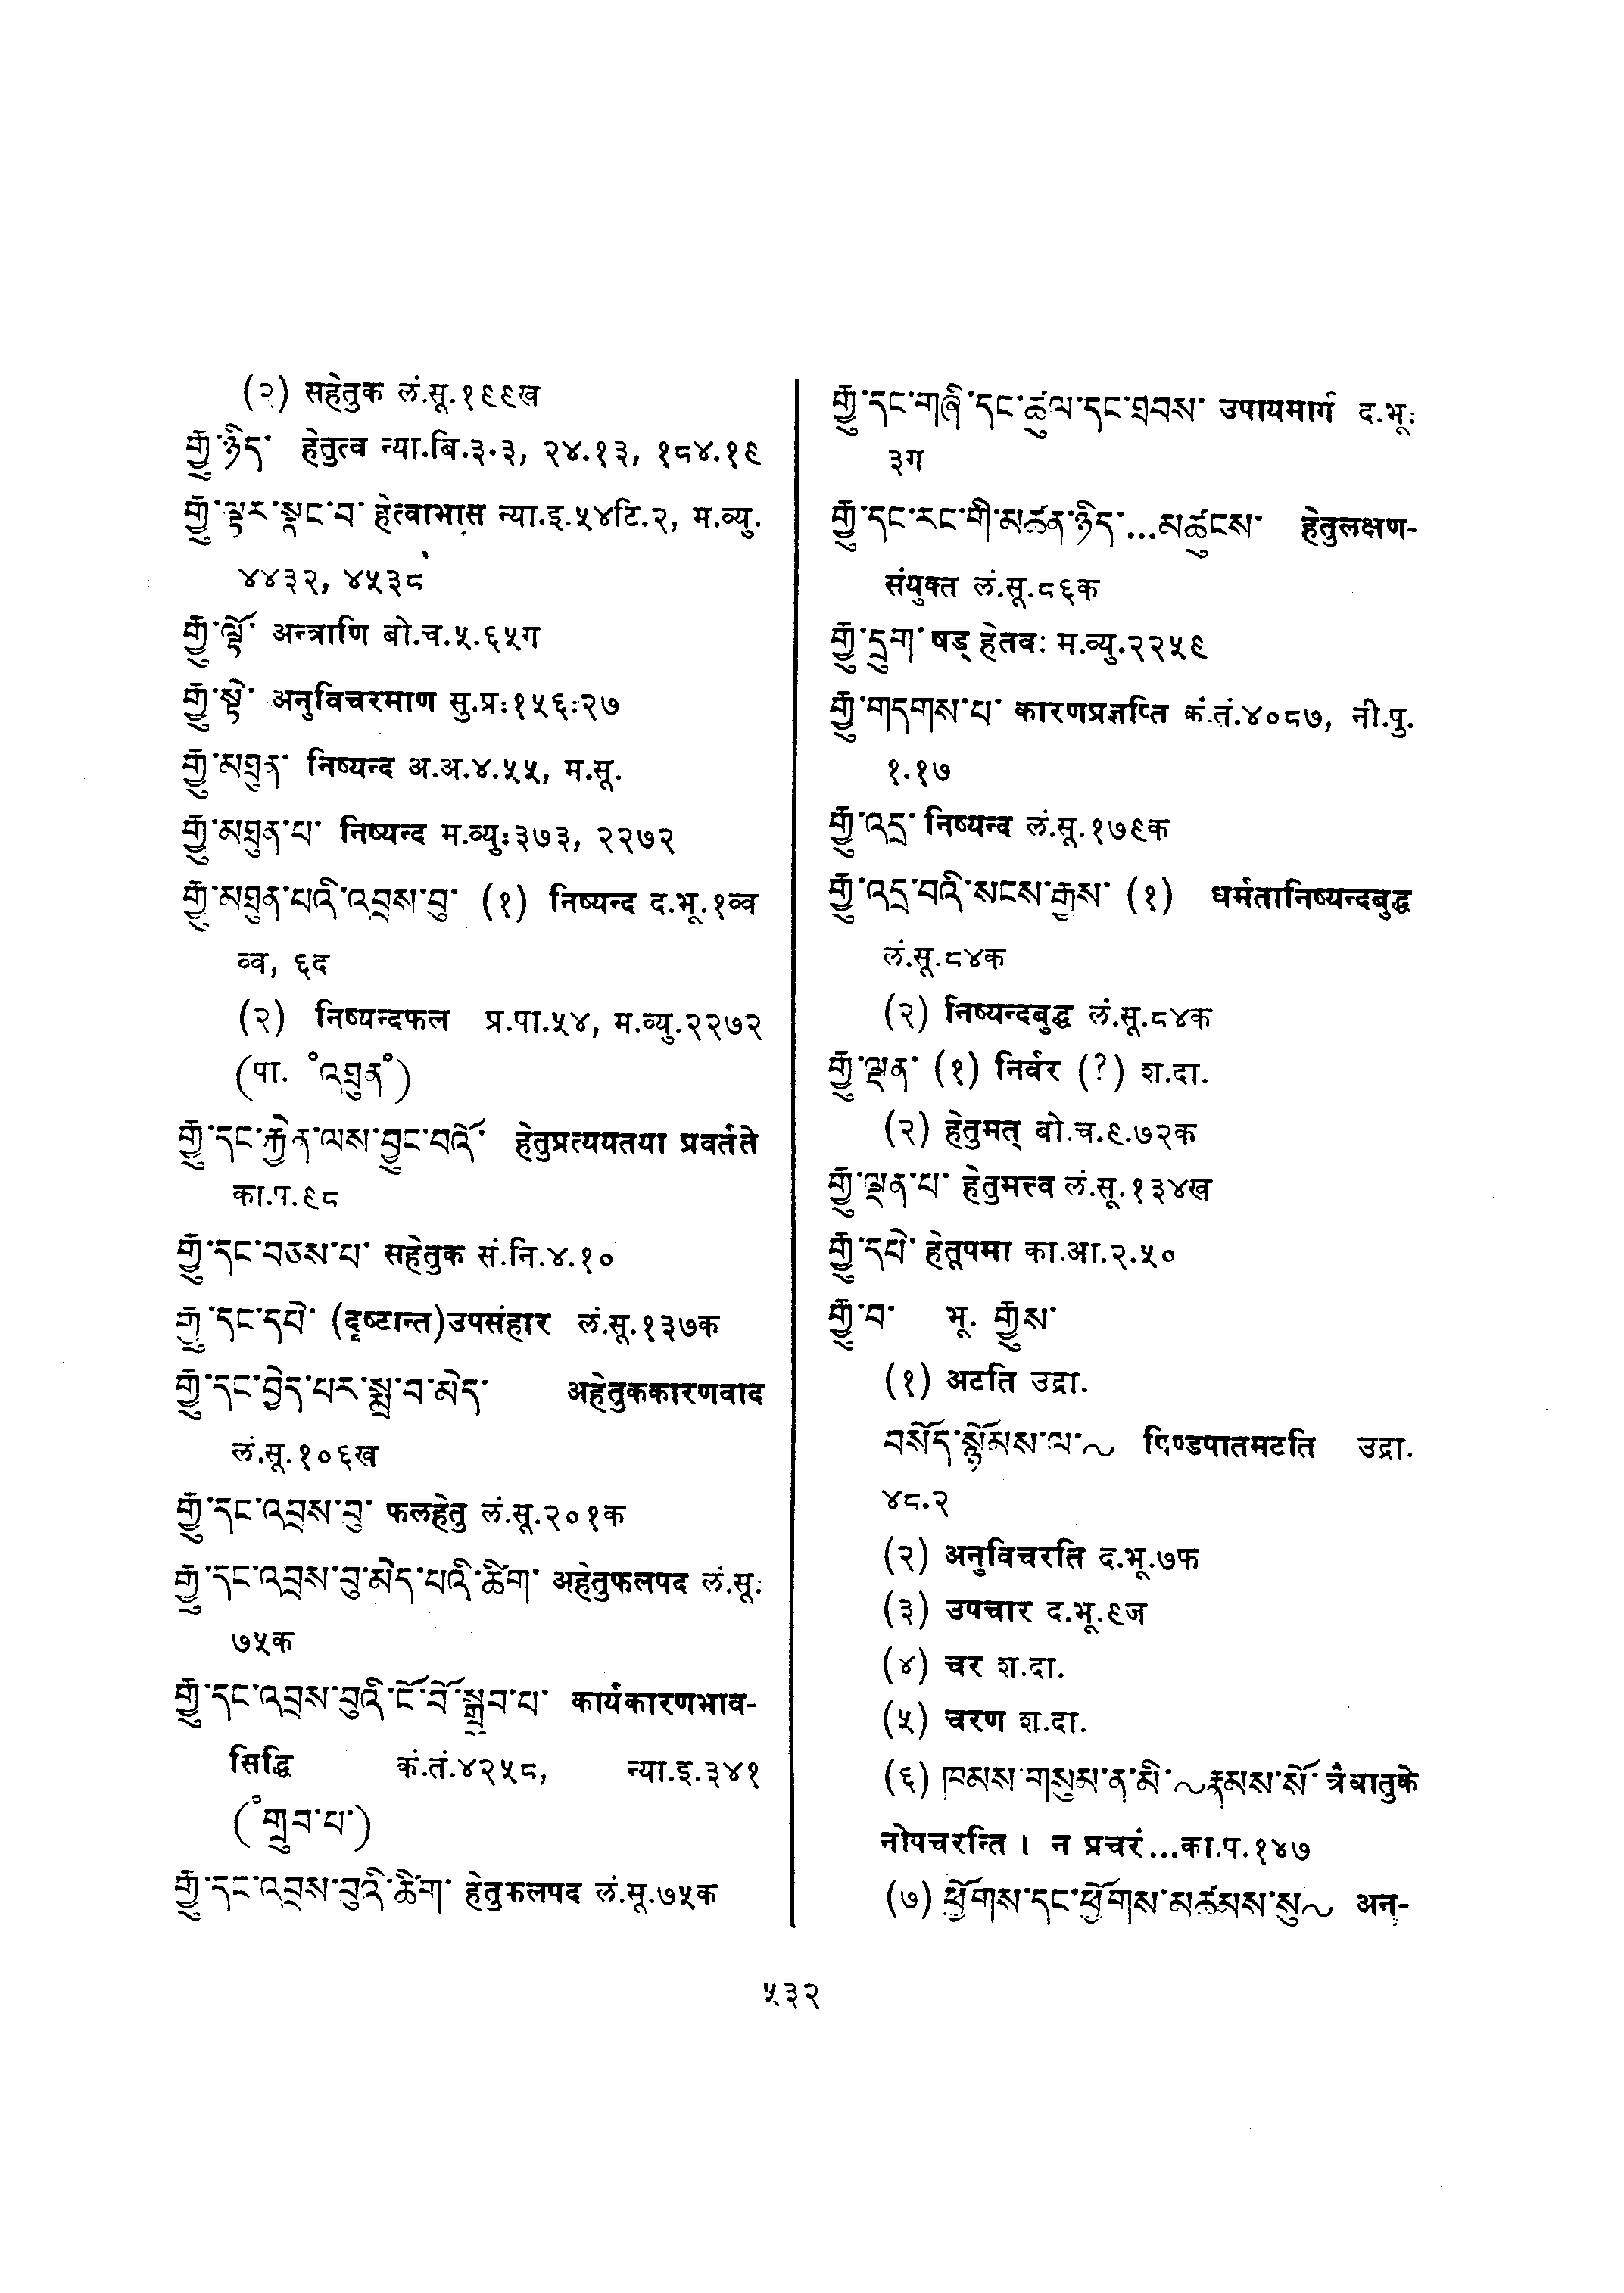 (२) सहेतुक लं.सू.१९९ख
རྒྱུ་ཉིད་ हेतुत्व न्या.बि.३.३, २४.१३, १८४.१९
རྒྱུ་ལྟར་སྣང་བ་ हेत्वाभास न्या.इ.५४टि.२, म.व्यु.
४४३२, ४५३८
རྒྱུ་ལྟོ་ अन्त्राणि बो.च.५.६५ग
རྒྱུ་སྟེ་ अनुविचरमाण सु.प्र.१५६:२७
རྒྱུ་མཐུན་ निष्यन्द अ.अ.४.५५, म.सू.
རྒྱུ་མཐུན་པ་ निष्यन्द म.व्यु.३७३, २२७२
རྒྱུ་མཐུན་པའི་འབྲས་བུ་ (१) निष्यन्द द.भू.१व्व
व्व, ६द
(२) निष्यन्दफल प्र.पा.५४, म.व्यु.२२७२
(पा. ༠འཐུན༠)
རྒྱུ་དང་རྐྱེན་ལས་བྱུང་བའོ་ हेतुप्रत्ययतया प्रवर्तते
का.प.९८
རྒྱུ་དང་བཅས་པ་ सहेतुक सं.नि.४.१०
རྒྱུ་དང་དཔེ་ (दृष्टान्त)उपसंहार लं.सू.१३७क
རྒྱུ་དང་བྱེད་པར་སྨྲ་བ་མེད་ अहेतुककारणवाद
लं.सू.१०६ख
རྒྱུ་དང་འབྲས་བུ་ फलहेतु लं.सू.२०१क
རྒྱུ་དང་འབྲས་བུ་མེད་པའི་ཚིག་ अहेतुफलपद लं.सू.
७५क
རྒྱུ་དང་འབྲས་བུའི་ངོ་བོ་སྒྲུབ་པ་ कार्यकारणभाव-
सिद्धि कं.तं.४२५८, न्या.इ.३४१
(༠གྲུབ་པ་)
རྒྱུ་དང་འབྲས་བུའི་ཚིག་ हेतुफलपद लं.सू.७५क
རྒྱུ་དང་གཞི་དང་ཚུལ་དང་ཐབས་ उपायमार्ग द.भू.
३ग
རྒྱུ་དང་རང་གི་མཚན་ཉིད་...མཚུངས་ हेतुलक्षण-
संयुक्त लं.सू.८६क
རྒྱུ་དྲུག་ षड् हेतवः म.व्यु.२२५९
རྒྱུ་གདགས་པ་ कारणप्रज्ञप्ति कं.तं.४०८७, नी.पु.
१.१७
རྒྱུ་འདྲ་ निष्यन्द लं.सू.१७९क
རྒྱུ་འདྲ་བའི་སངས་རྒྱས་ (१) धर्मतानिष्यन्दबुद्ध
लं.सू.८४क
(२) निष्यन्दबुद्ध लं.सू.८४क
རྒྱུ་ལྡན་ (१) निर्वर (?) श.दा.
(२) हेतुमत् बो.च.९.७२क
རྒྱུ་ལྡན་པ་ हेतुमत्त्व लं.सू.१३४ख
རྒྱུ་དཔེ་ हेतूपमा का.आ.२.५०
རྒྱུ་བ་ भू. རྒྱུས་
(१) अटति उद्रा.
བསོད་སྙོམས་ལ་~ पिण्डपातमटति उद्रा.
४८.२
(२) अनुविचरति द.भू.७फ
(३) उपचार द.भू.९ज
(४) चर श.दा.
(५) चरण श.दा.
(६) ཁམས་གསུམ་ན་མི་~རྣམས་སོ་ त्रैधातुके
नोपचरन्ति । न प्रचरं...का.प.१४७
(७) ཕྱོགས་དང་ཕྱོགས་མཚམས་སུ~ अनु-
५३२